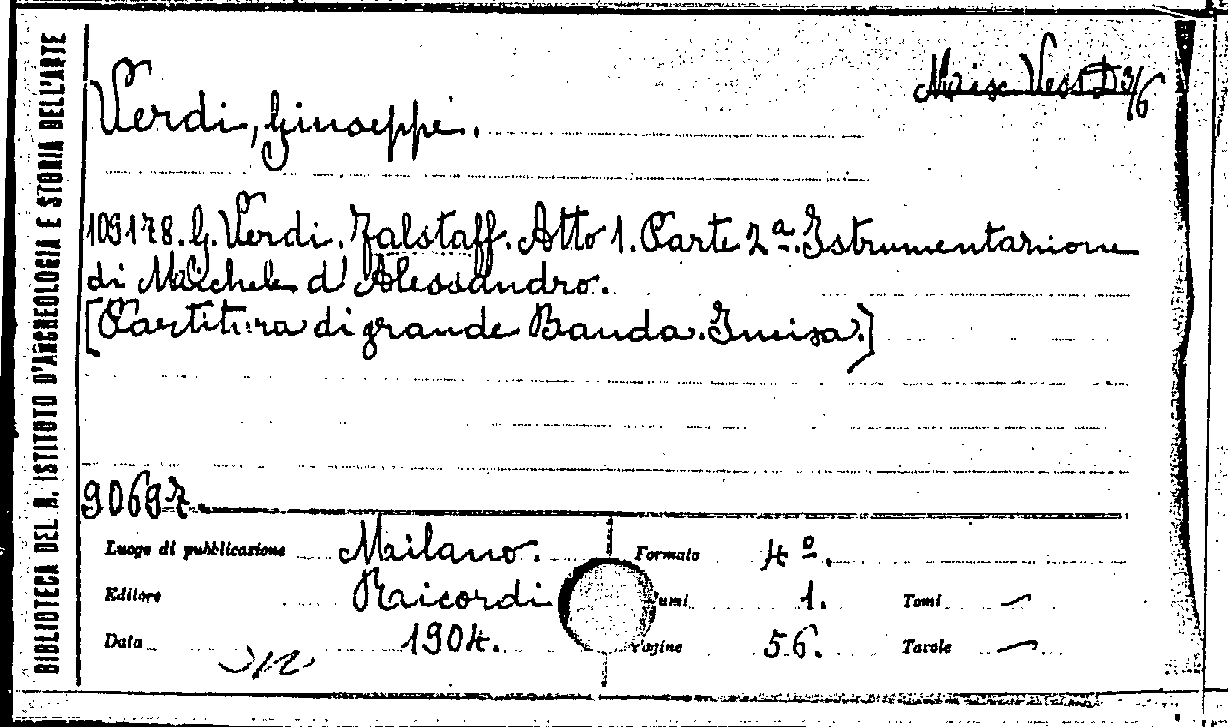 BIBLIOTECA DEL R. ISTITUTO D'ARCHEOLOGIA E STORIA DELL'ARTE
Misc. Vess D 3/6
Verdi, Giuseppe.
109178. G. Verdi. Falstaff. Atto 1. Parte 2ª. Istrumentazione
di Michele d'Alessandro.
[Partitura di grande Banda. Incisa.]
90697
Luogo di pubblicazione Milano. Formato 4º.
Editore Ricordi umi 1. Tomi —
Data 1904. Pagine 56. Tavole —